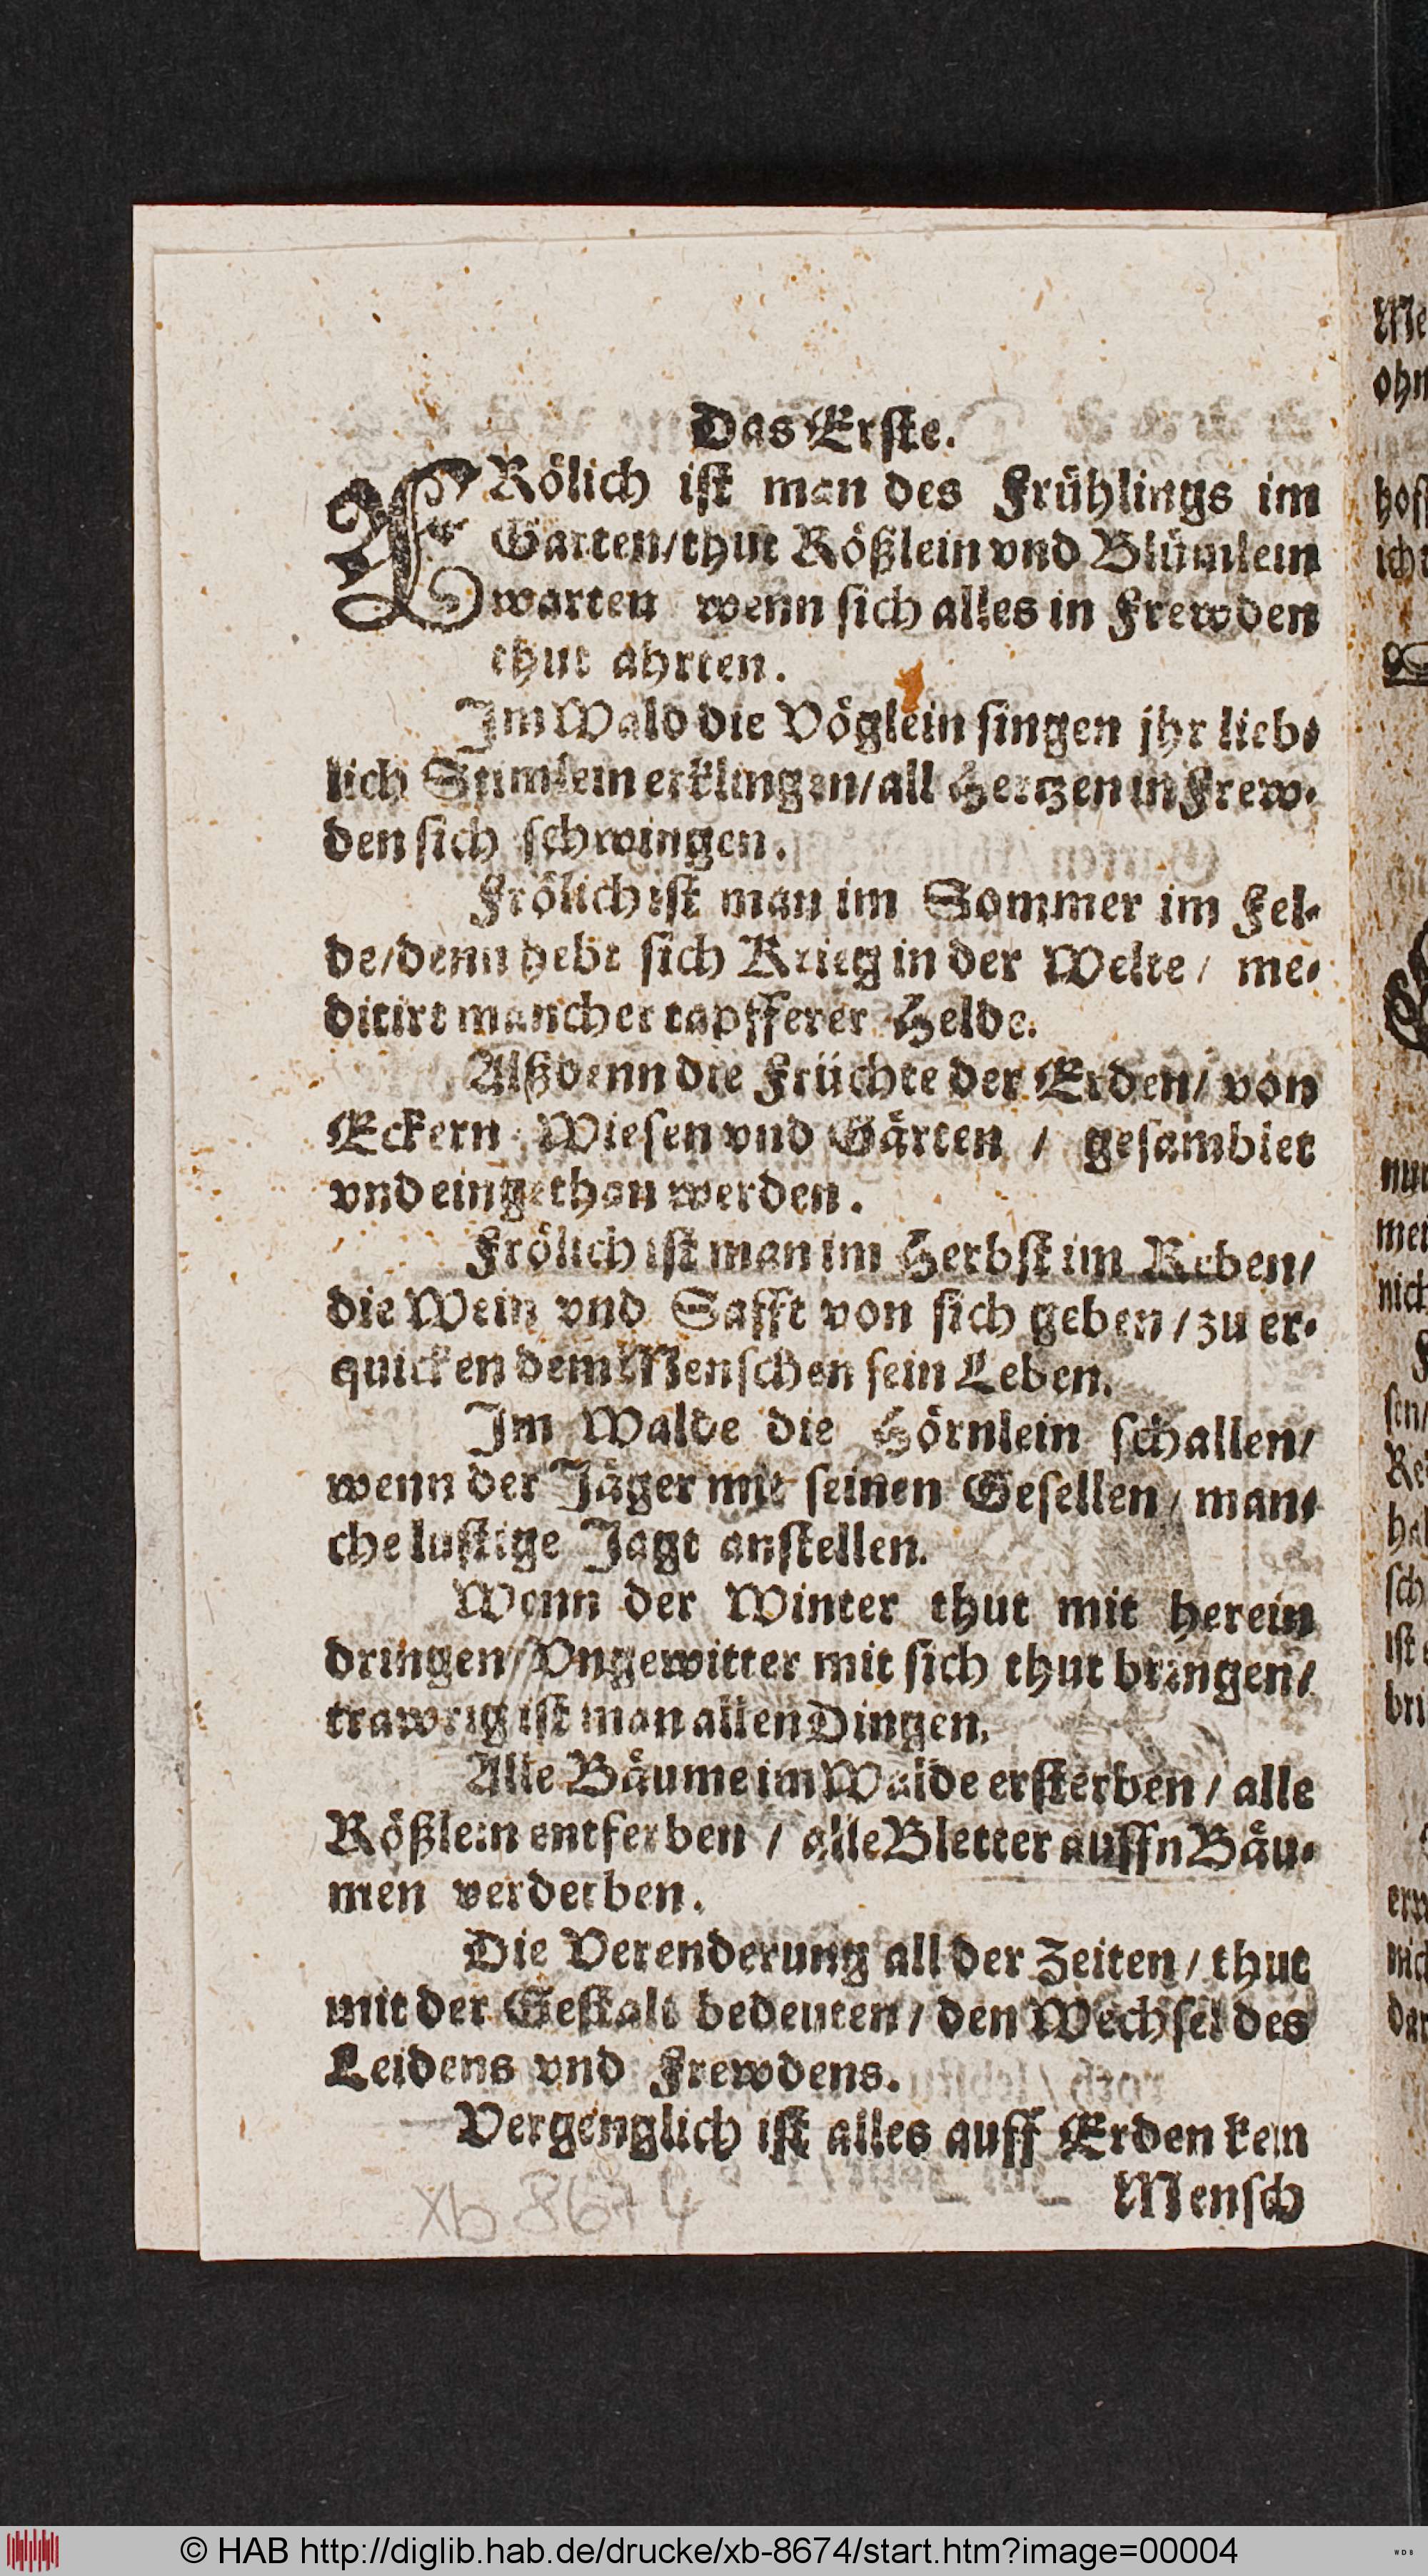 Das Erste.
FRölich ist man des Frühlings im
Garten/thut Rößlein vnd Blümlein
warten wenn sich alles in Frewden
thut ahrten.
Im Wald die Vöglein singen jhr lieb-
lich Stimlein erklingen/all Hertzen in Frew-
den sich schwingen.
Frölich ist man im Sommer im Fel-
de/denn hebt sich Krieg in der Welte/ me-
ditirt mancher tapfferer Helde.
Alßdenn die Früchte der Erden/ von
Eckern Wiesen vnd Gärten / gesamblet
vnd eingethan werden.
Frölich ist man im Herbst im Reben/
die Wein vnd Safft von sich geben/zu er-
quicken dem Menschen sein Leben.
Im Walde die Hörnlein schallen/
wenn der Jäger mit seinen Gesellen/ man-
che lustige Jagt anstellen.
Wenn der Winter thut mit herein
dringen/Vngewitter mit sich thut bringen/
trawrig ist man allen Dingen.
Alle Bäume im Walde ersterben/ alle
Rößlein entferben / alle Bletter auffn Bäu-
men verderben.
Die Verenderung all der Zeiten/ thut
mit der Gestalt bedeuten/ den Wechsel des
Leidens vnd Frewdens.
Vergenglich ist alles auff Erden kein
Mensch
Xb 8674
© HAB http://diglib.hab.de/drucke/xb-8674/start.htm?image=00004
WDB